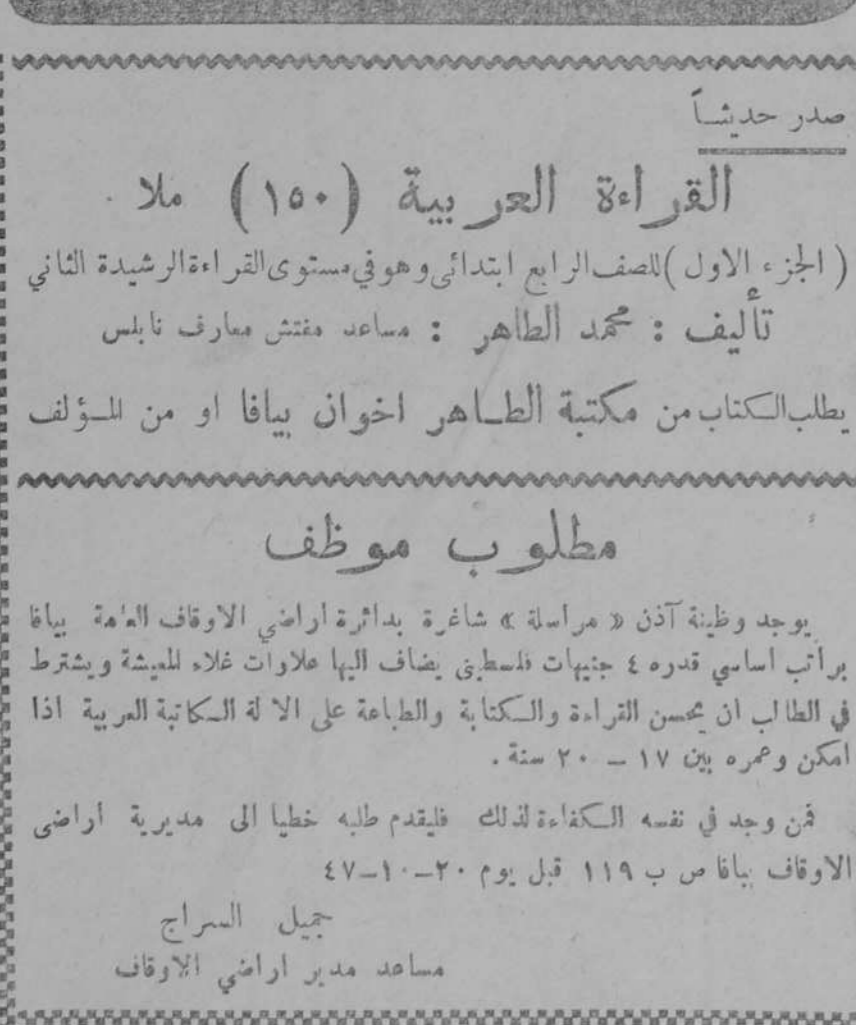 صدر حديثـاً
القراءة العربية (١٥٠) ملا
( الجزء الاول )للصف الرابع ابتدائي وهو في مستوى القراءة الرشيدة الثاني
تأليف : محمد الطاهر : مساعد مفتش معارف نابلس
يطلب الكتاب من مكتبة الطـاهر اخوان بيافا او من المـؤلف
مطلوب موظف
يوجد وظيفة آذن « مراسلة » شاغرة بدائرة اراضي الاوقاف العامة بيافا
براتب اساسي قدره ٤ جنيهات فلسطيني يضاف اليها علاوات غلاء المعيشة ويشترط
في الطالب ان يحسن القراءة والكتابة والطباعة على الالة الكاتبة العربية اذا
امكن وعمره بين ١٧ – ٢٠ سنة .
فمن وجد في نفسه الكفاءة لذلك فليقدم طلبه خطيا الى مديرية اراضي
الاوقاف بيافا ص ب ١١٩ قبل يوم ٢٠–١٠–٤٧
جميل السراج
مساعد مدير اراضي الاوقاف